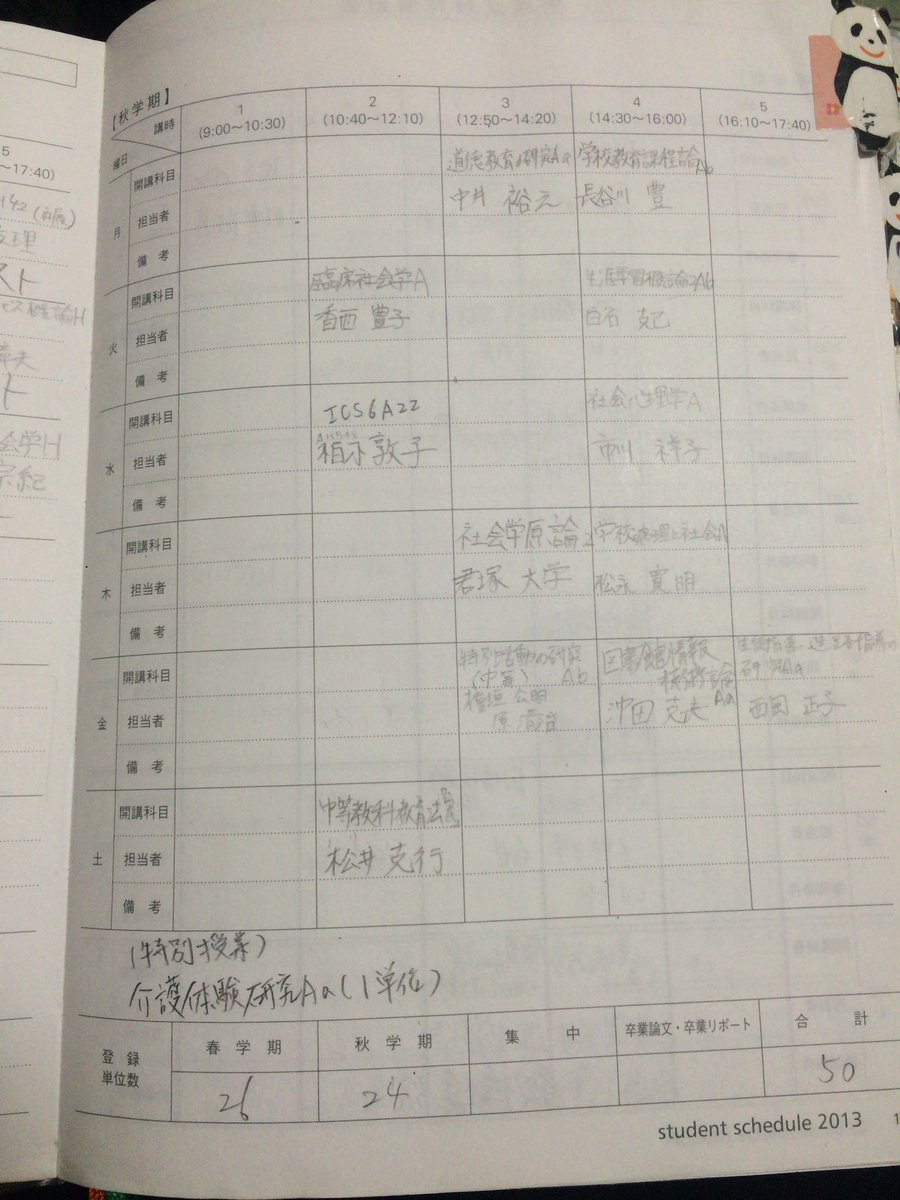 5
17:40)
142(再履)
スト
ト
会学H
【秋学期】
講時
曜日
1
(9:00〜10:30)
2
(10:40〜12:10)
3
(12:50〜14:20)
4
(14:30〜16:00)
5
(16:10〜17:40)
月
開講科目
道徳教育の研究Aa
学校教育課程論Ab
担当者
中井 裕元
長谷川 豊
備考
火
開講科目
臨床社会学A
生涯学習概論2Ab
担当者
香西 豊子
白石 克己
備考
水
開講科目
ICS6A22
社会心理学A
担当者
敦子
市川 祥子
備考
木
開講科目
社会学原論2
学校病理と社会A
担当者
君塚 大学
松永 寛明
備考
金
開講科目
特別活動の研究
(中等) Ab
図書館情報
技術論
Aa
生徒指導・進路指導の
研究Aa
担当者
檜垣 公明
原 清治
沖田 克夫
西岡 正子
備考
土
開講科目
中等教科教育法
担当者
松井 克行
備考
(特別授業)
介護体験研究Aa(1単位)
登録
単位数
春学期
秋学期
集中
卒業論文・卒業リポート
合計
26
24
50
student schedule 2013
1